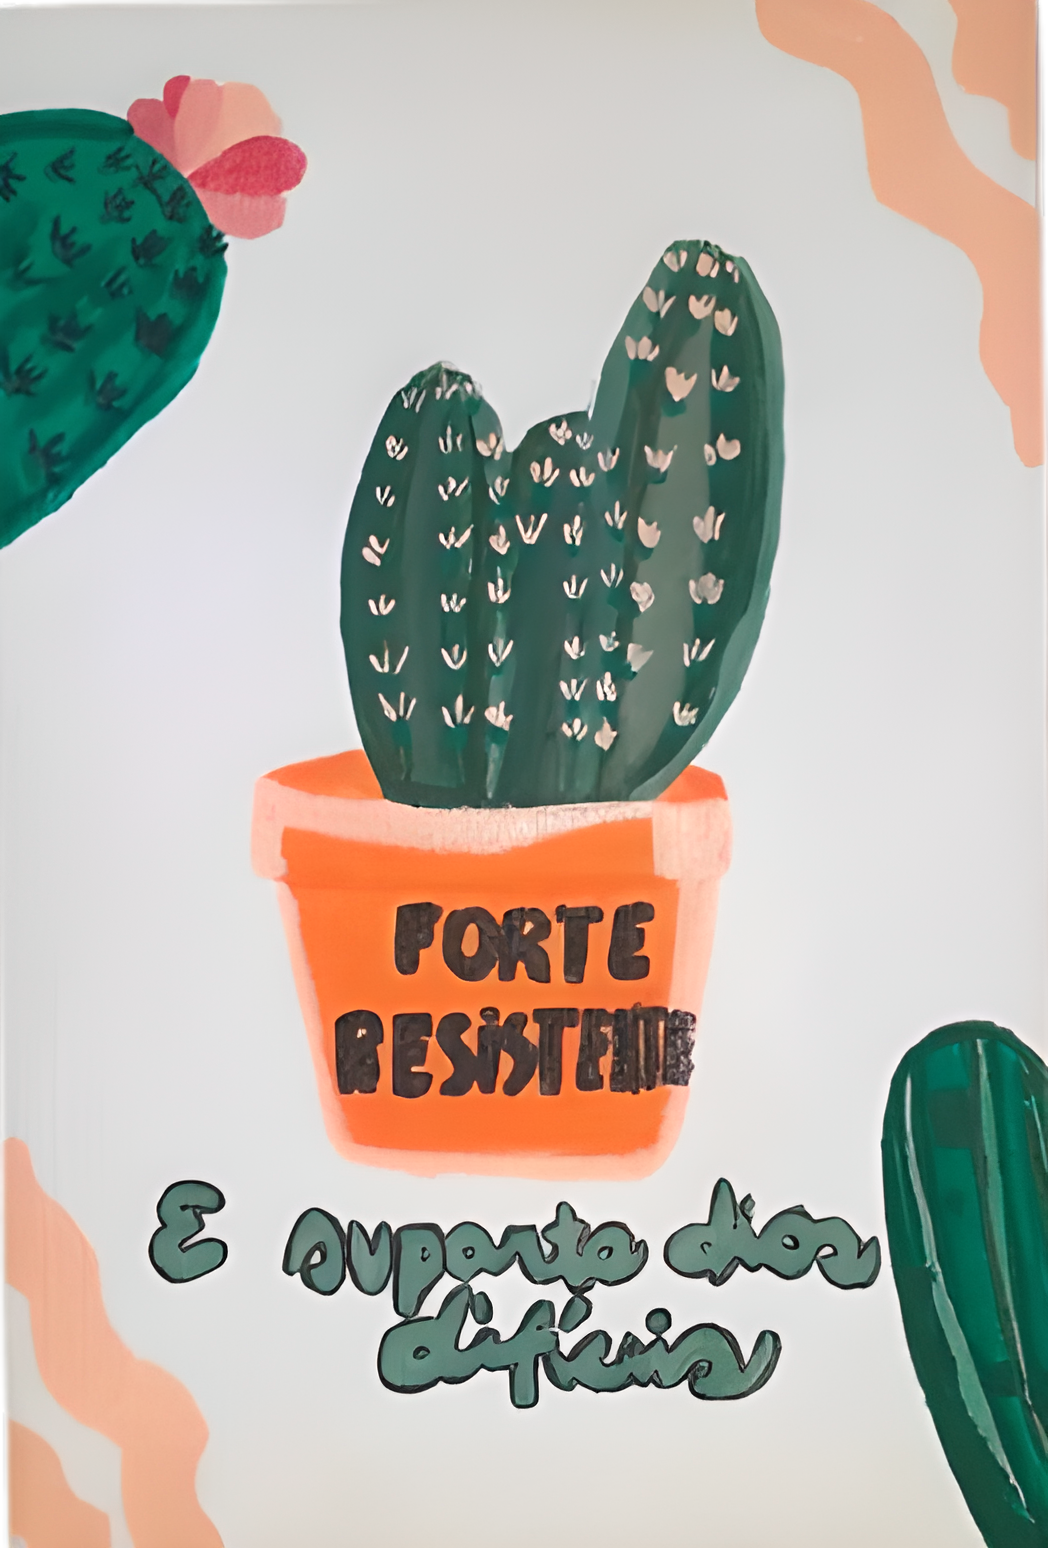 FORTE
RESiSTENTE
E suporta dias
difíceis